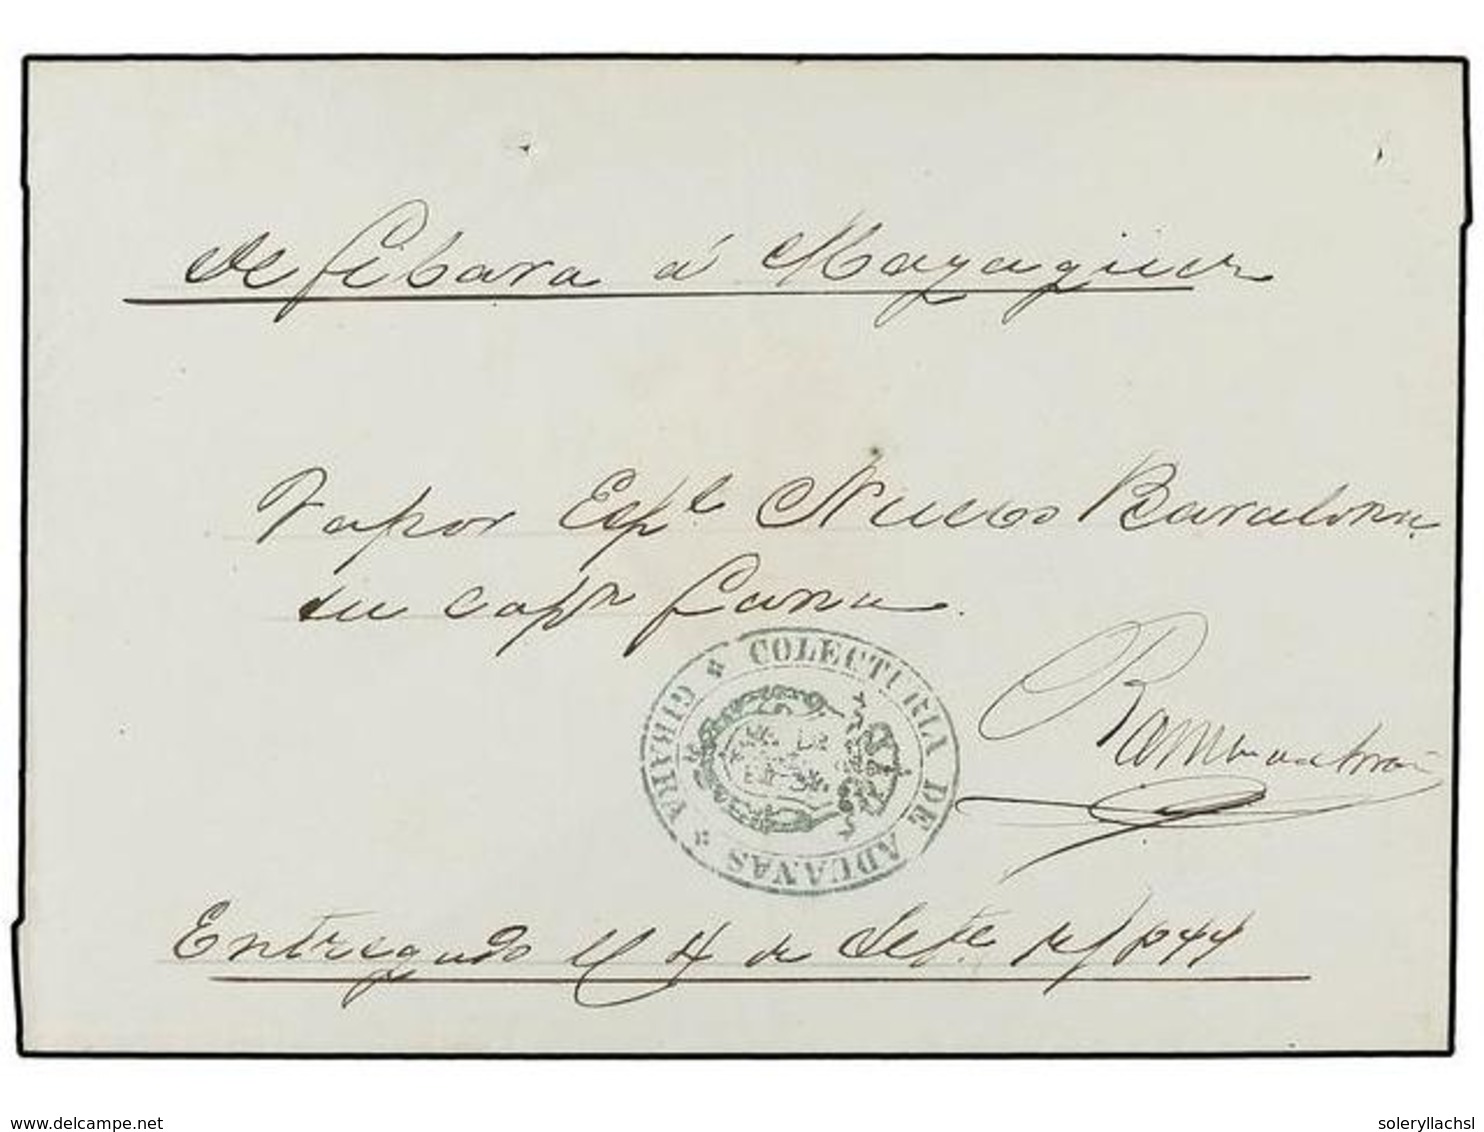 de Gibara á Mayaguez
Vapor Esp.l Nuevo Barcelona
su cap.n Cano
COLECTURIA DE ADUANAS
GIBARA
Entregado el 4 de Sete.
delcampe.net
soleryllachsl